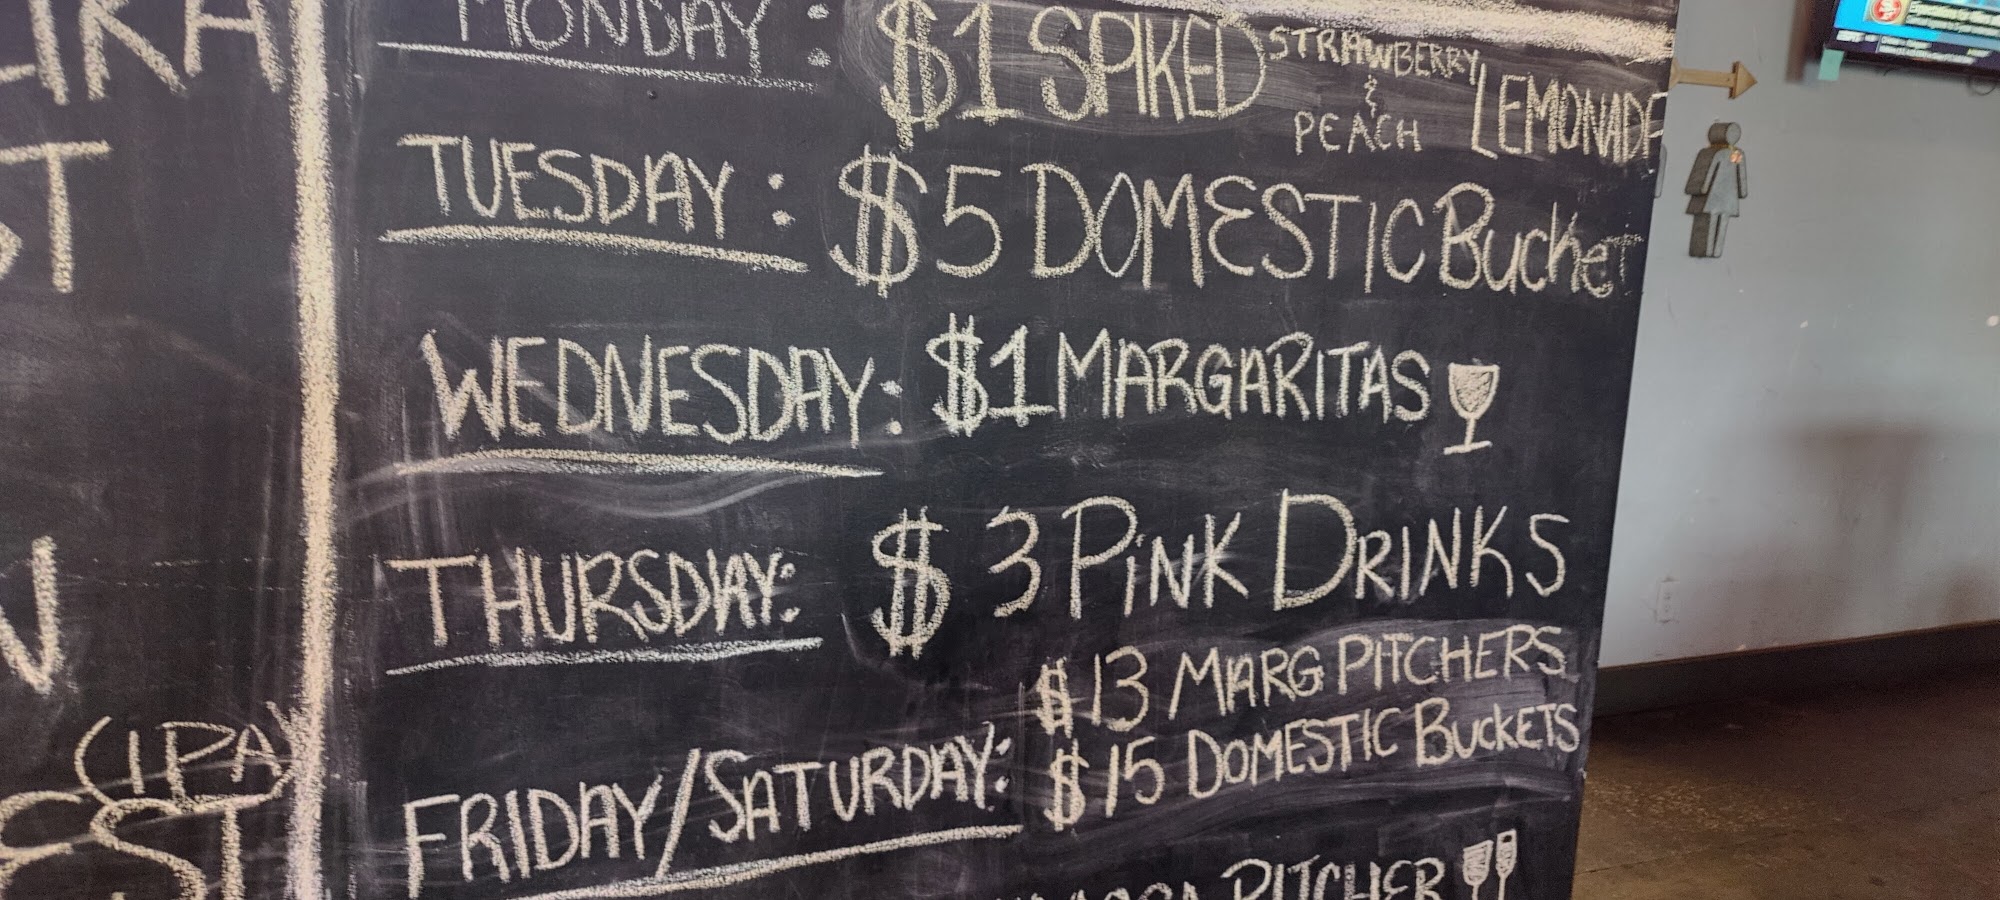 MONDAY: $1 SPIKED STRAWBERRY & PEACH LEMONADE
TUESDAY: $5 DOMESTIC Bucket
WEDNESDAY: $1 MARGARITAS
THURSDAY: $3 PiNK DRINKS
$13 MARG PITCHERS
FRIDAY/SATURDAY: $15 DOMESTIC BuckETS
PITCHER
(IPA)